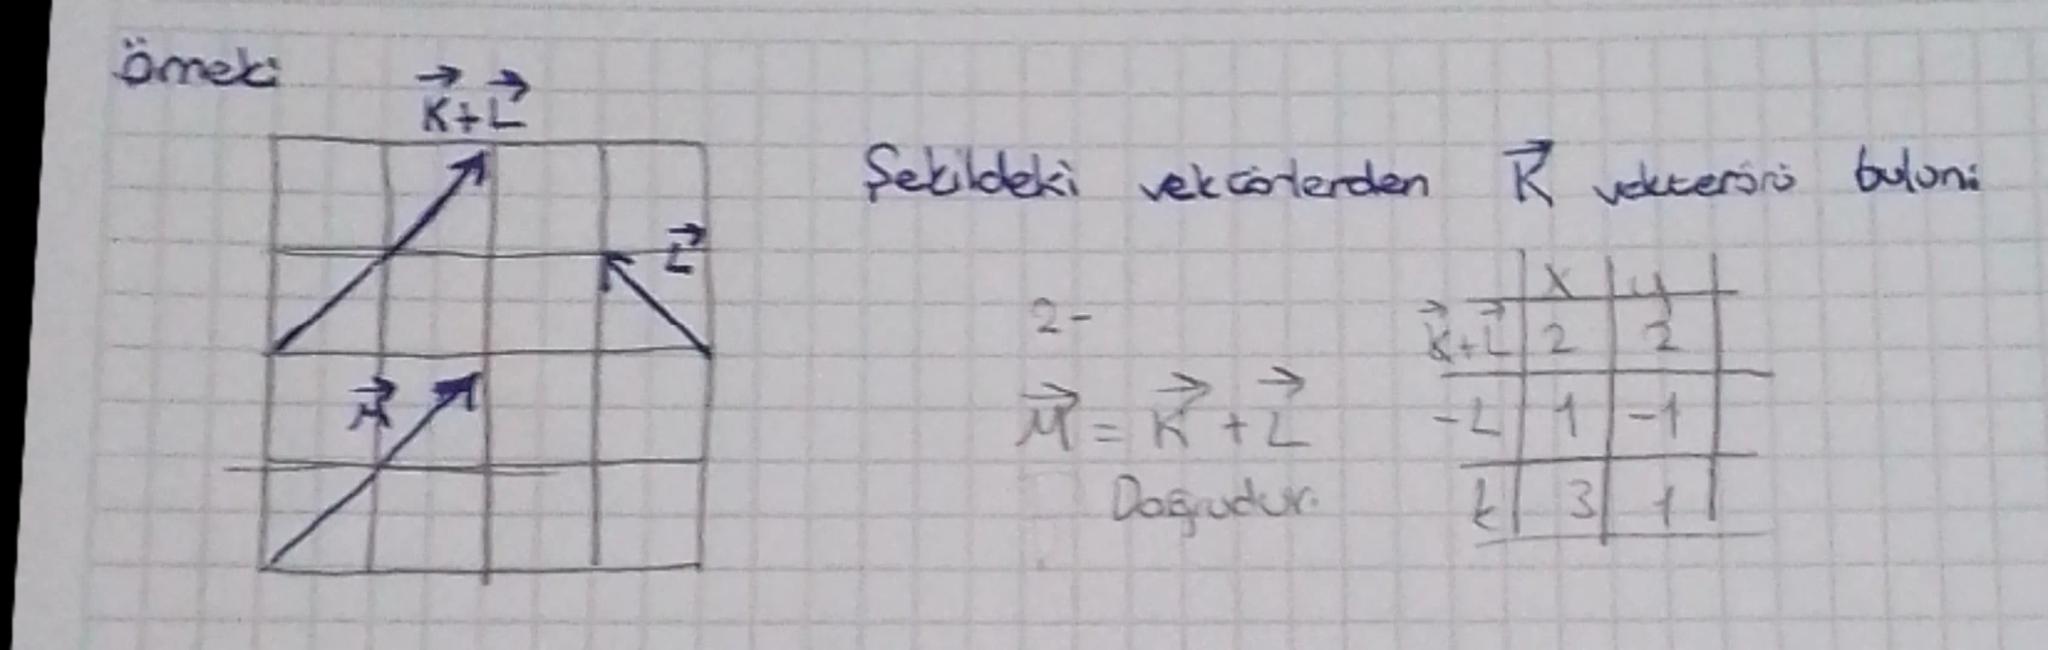 Örnek:
K+L
Şekildeki vektörlerden K vektörünü bulun:
L
M
2-
M = K + L
Doğrudur.
x y
K+L 2 2
-L 1 -1
k 3 1